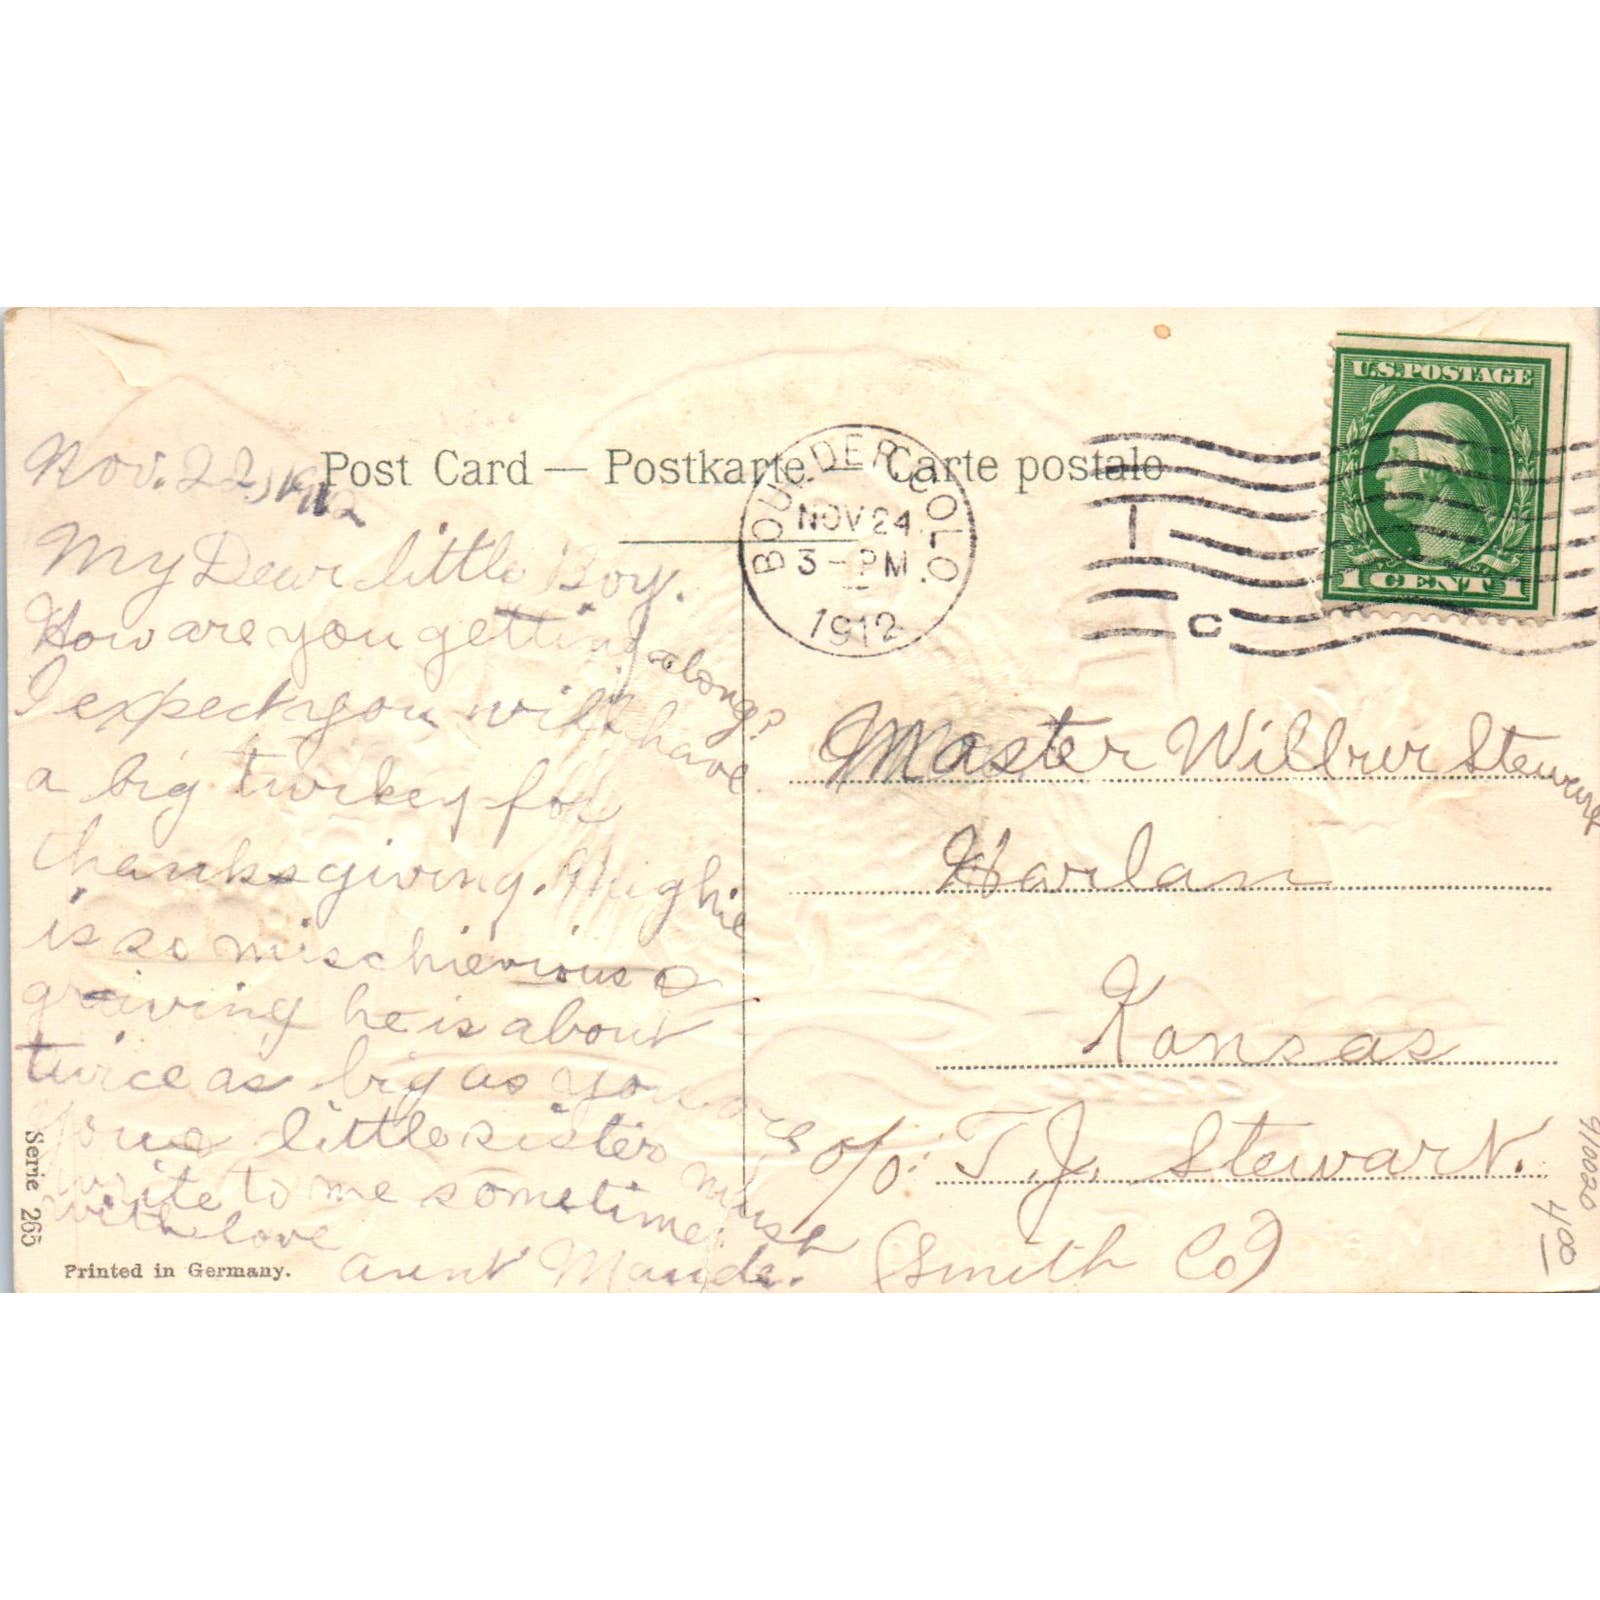 Post Card — Postkarte — Carte postale
BOULDER COLO.
NOV 24
3 - PM
1912
1
C
U.S. POSTAGE
1 CENT 1
Nov. 22, 1912
My Dear little Boy.
How are you getting along?
I expect you will have
a big turkey for
thanksgiving. Hughie
is so mischievious &
growing he is about
twice as big as you are
your little sister must
write to me sometime.
with love
aunt Maude.
Master Wilbur Stewart
Harlan
Kansas
c/o: T. J. Stewart.
(Smith Co)
Serie 265
Printed in Germany.
910020
400